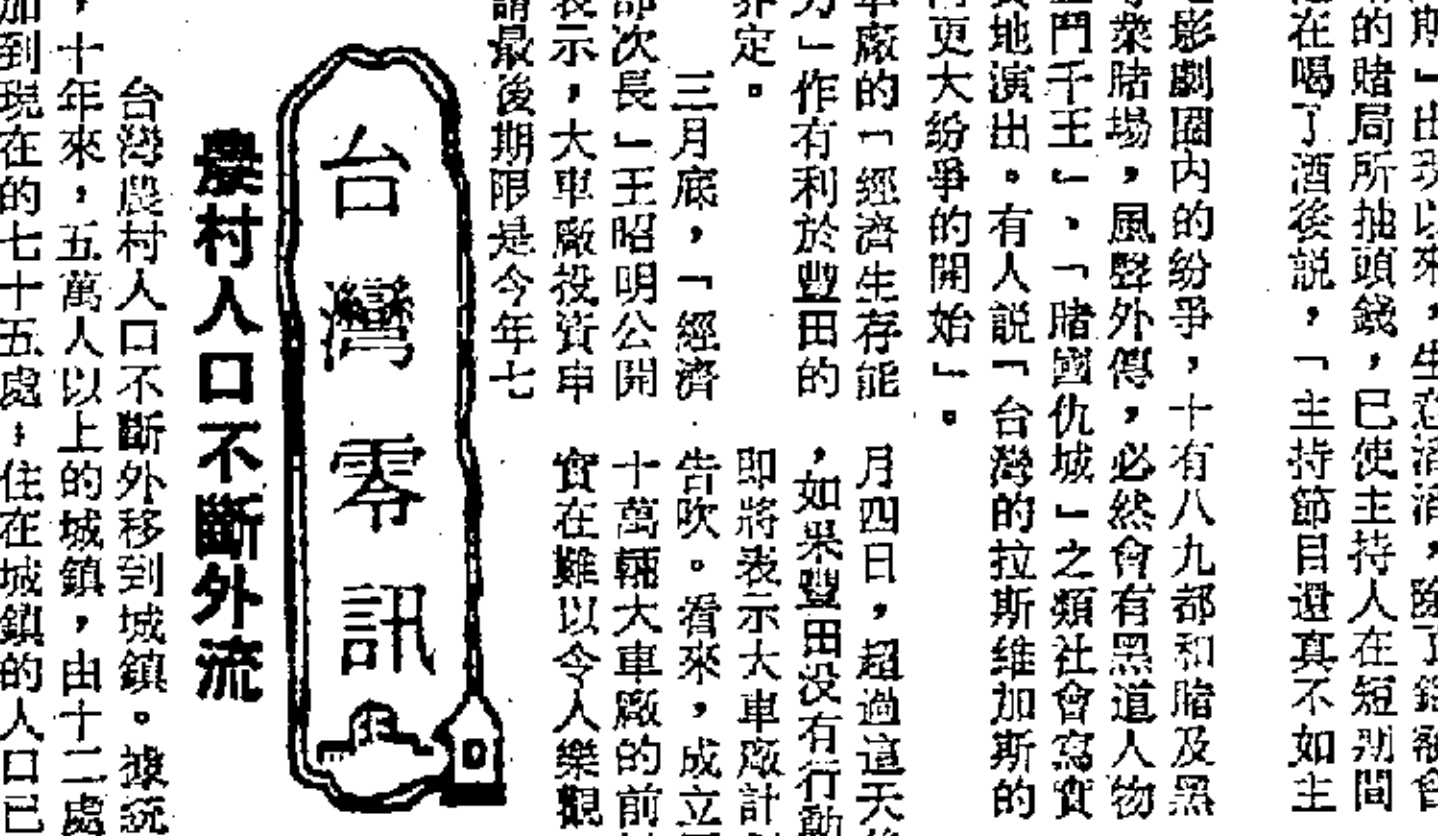 期」出現以來，生意
的賭局所抽頭錢，已使主持人在短期間
在喝了酒後説，「主持節目還真不如主
影劇圈内的紛爭，十有八九都和賭及黑
賭場，風聲外傳，必然會有黑道人物
鬥千王」、「賭國仇城」之類社會寫實
地演出。有人説「台灣的拉斯維加斯的
更大紛爭的開始」。
車廠的「經濟生存能
力」作有利於豐田的
界定。
三月底，「經濟
部次長」王昭明公開
表示，大車廠投資申
請最後期限是今年七
月四日，超過這天
，如果豐田没有行動
即將表示大車廠計
告吹。看來，成立
十萬輛大車廠的前
實在難以令人樂觀
台灣零訊
農村人口不斷外流
台灣農村人口不斷外移到城鎮。據統
，十年來，五萬人以上的城鎮，由十二處
加到現在的七十五處；住在城鎮的人口已